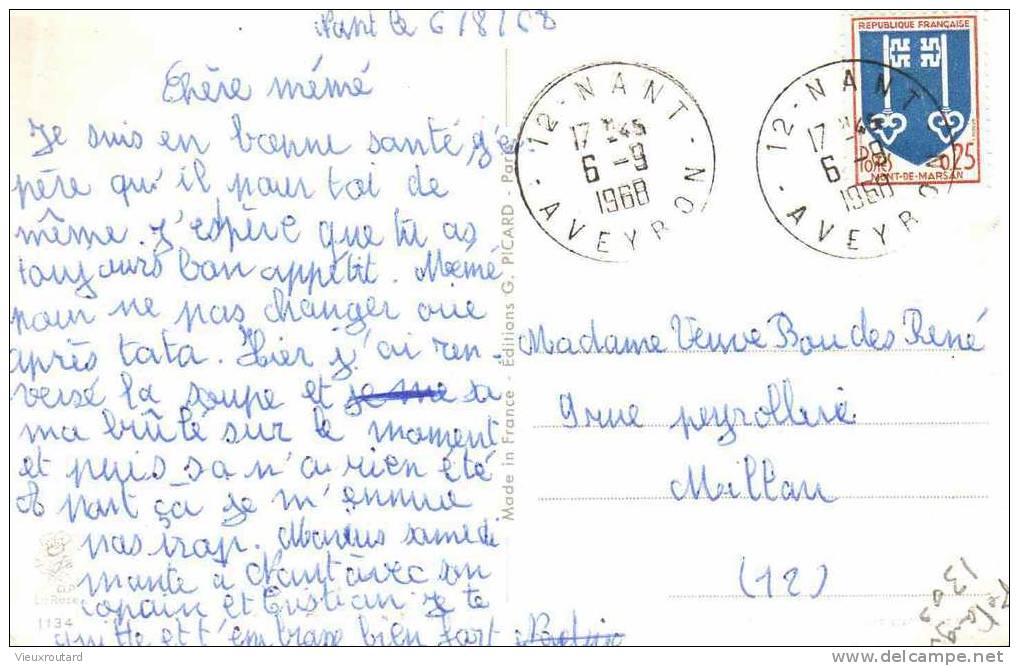 Nant le 6/8/68
Chère mémé
Je suis en bonne santé j'es
père qu'il pour toi de
même. J'espère que tu as
toujours bon appétit. Mémé
pour ne pas changer
après tata. Hier j'ai ren-
versé la soupe et je me sa
ma brûlé sur le moment
et puis sa n'a rien été
A part ça je m'ennue
pas trop. samedi
monte à Nant avec son
copain et Cristian. Je te
quitte et t'embrasse bien fort
La Rose
1134
Made in France - Éditions G. PICARD - Paris
12-NANT
17 H 45
6-9
1968
AVEYRON
12-NANT
17 H 45
6-9
1968
AVEYRON
REPUBLIQUE FRANÇAISE
Postes 0,25
MONT-DE-MARSAN
Madame Veuve Boudes René
9 rue peyrollerie
Millau
(12)
1303
Vieuxroutard
www.delcampe.net